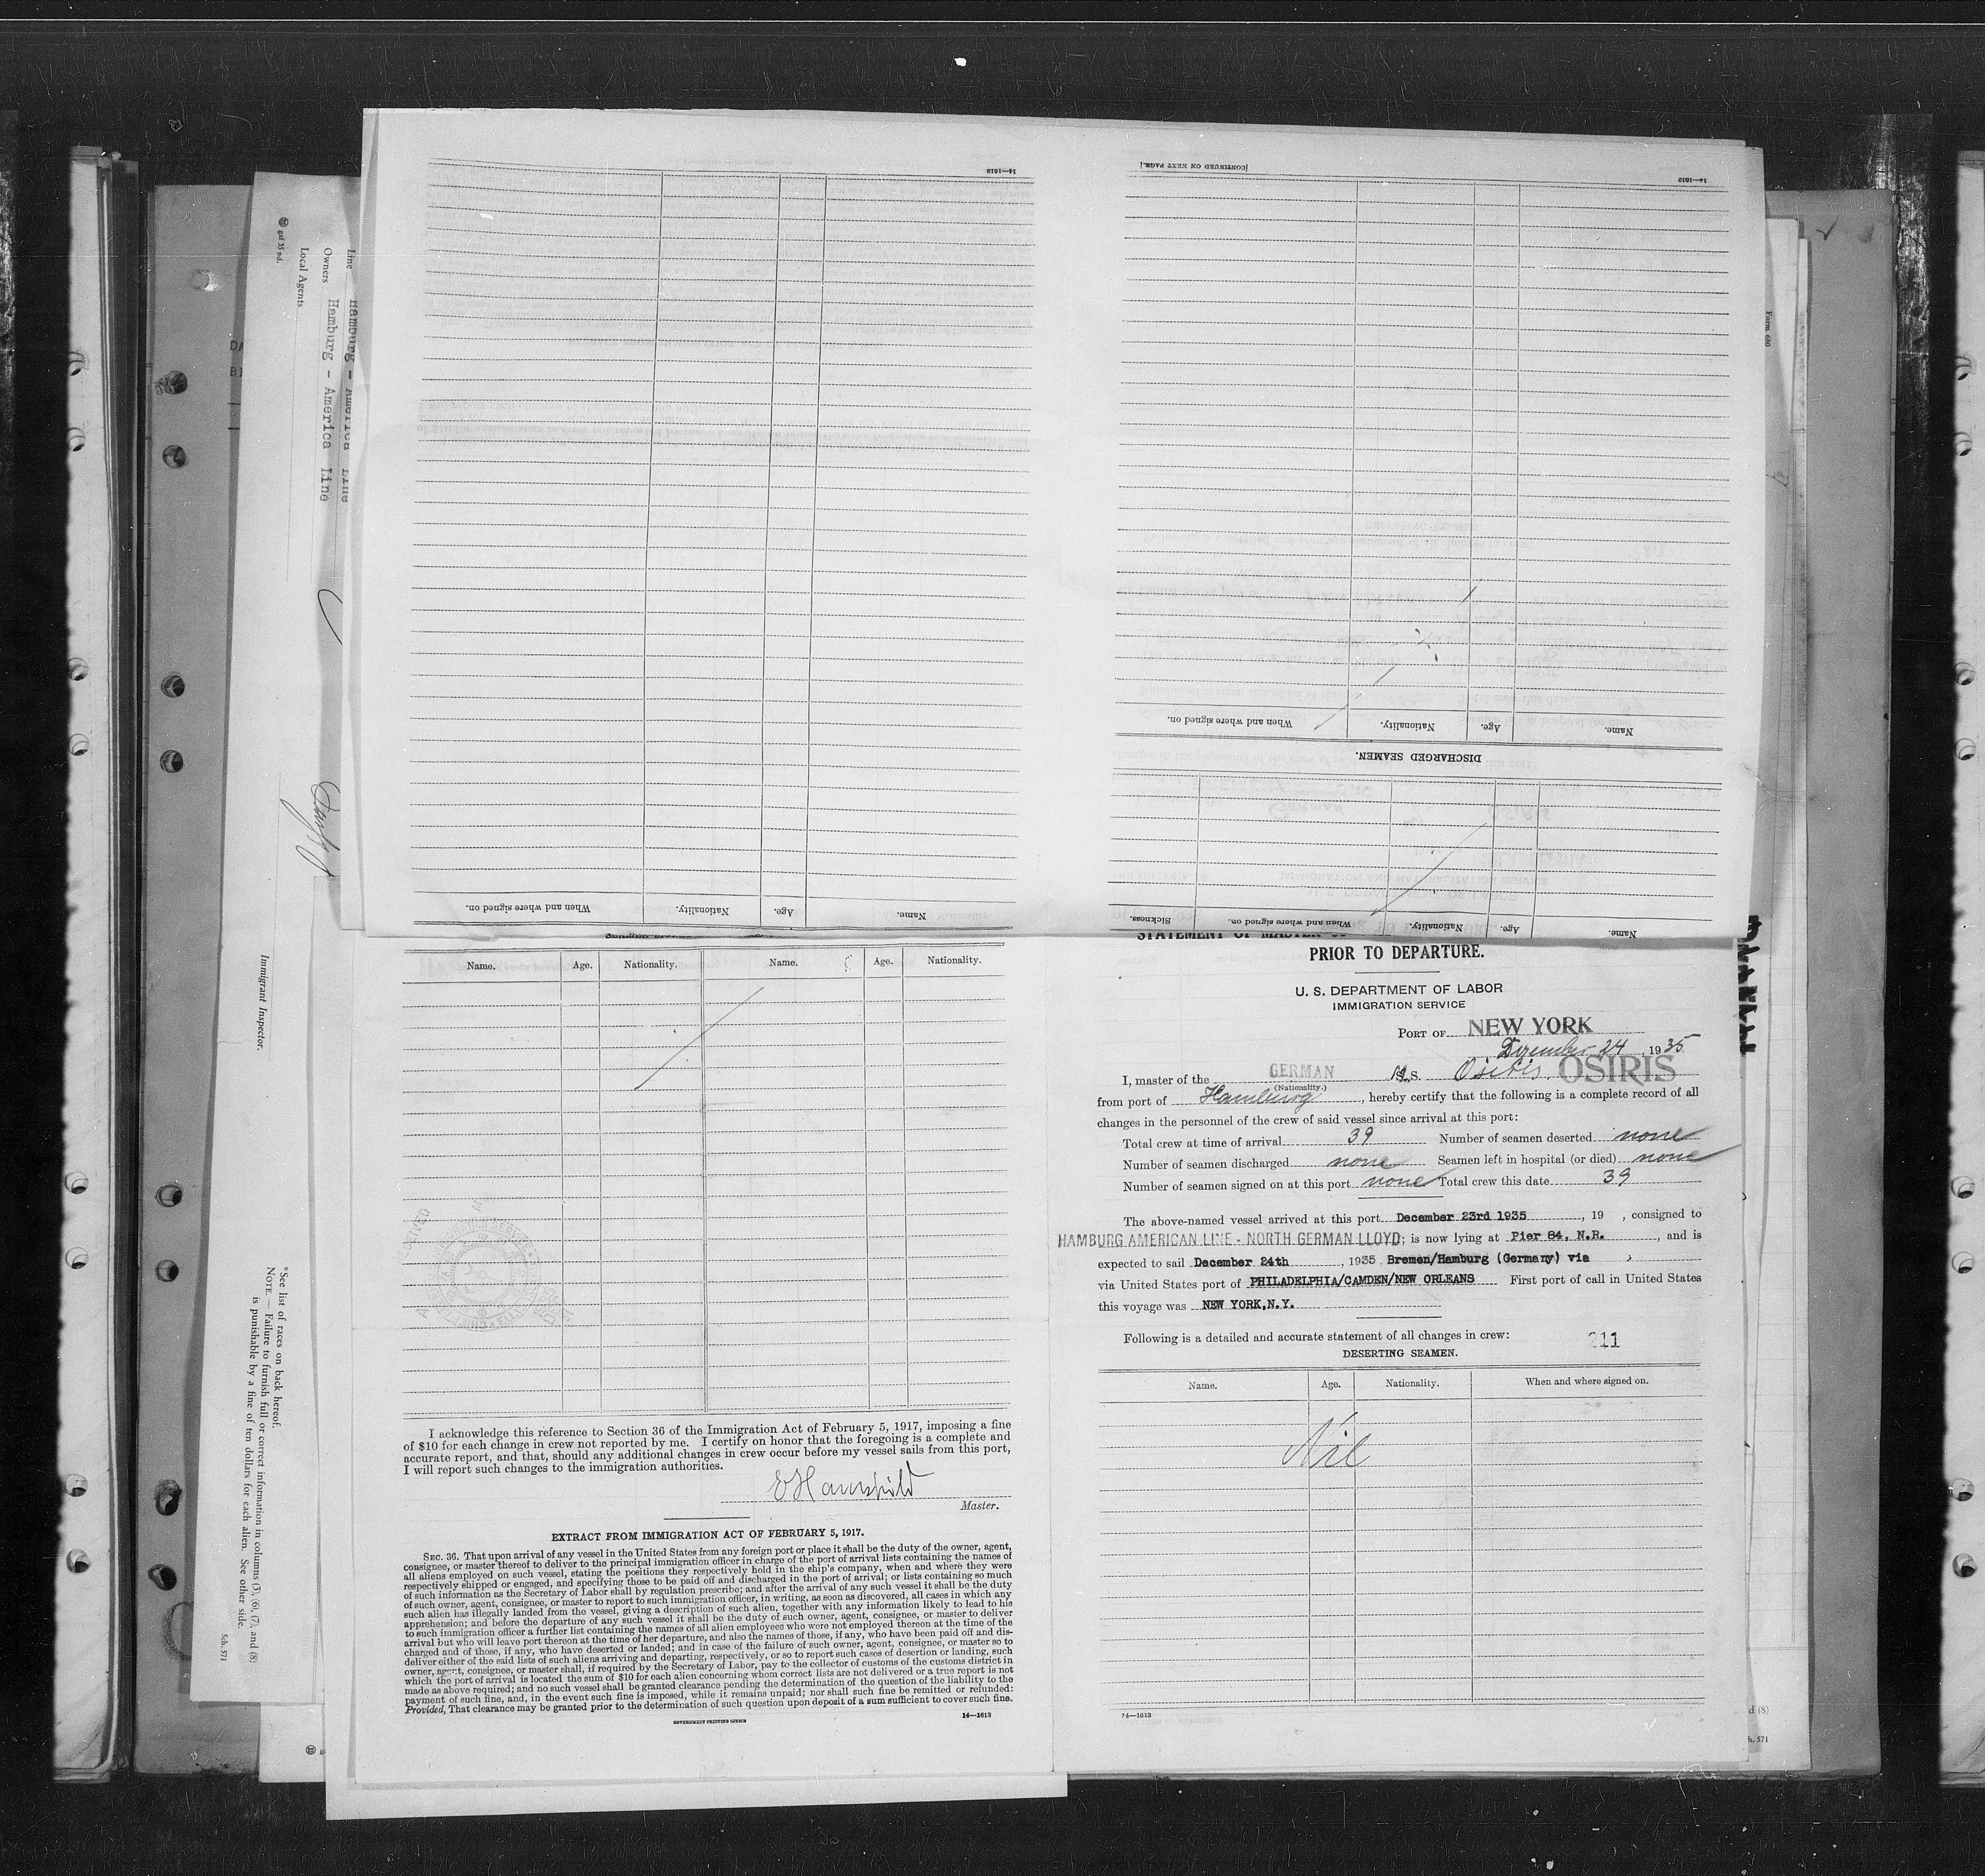 14—1613
[CONTINUED ON NEXT PAGE.]
14—1613
Name. Age. Nationality. When and where signed on.
DISCHARGED SEAMEN.
Name. Age. Nationality. When and where signed on.
Name. Age. Nationality. When and where signed on. Sickness.
Line Hamburg - America Line
Owners Hamburg - America Line
Local Agents
Immigrant Inspector.
*See list of races on back hereof.
NOTE.—Failure to furnish full or correct information in columns (3), (6), (7), and (8)
is punishable by a fine of ten dollars for each alien. See other side.
Sch. 571
Form 680
Name. Age. Nationality. Name. Age. Nationality.
I acknowledge this reference to Section 36 of the Immigration Act of February 5, 1917, imposing a fine
of $10 for each change in crew not reported by me. I certify on honor that the foregoing is a complete and
accurate report, and that, should any additional changes in crew occur before my vessel sails from this port,
I will report such changes to the immigration authorities.
Master.
EXTRACT FROM IMMIGRATION ACT OF FEBRUARY 5, 1917.
SEC. 36. That upon arrival of any vessel in the United States from any foreign port or place it shall be the duty of the owner, agent,
consignee, or master thereof to deliver to the principal immigration officer in charge of the port of arrival lists containing the names of
all aliens employed on such vessel, stating the positions they respectively hold in the ship's company, when and where they were
respectively shipped or engaged, and specifying those to be paid off and discharged in the port of arrival; or lists containing so much
of such information as the Secretary of Labor shall by regulation prescribe; and after the arrival of any such vessel it shall be the duty
of such owner, agent, consignee, or master to report to such immigration officer, in writing, as soon as discovered, all cases in which any
such alien has illegally landed from the vessel, giving a description of such alien, together with any information likely to lead to his
apprehension; and before the departure of any such vessel it shall be the duty of such owner, agent, consignee, or master to deliver
to such immigration officer a further list containing the names of all alien employees who were not employed thereon at the time of the
arrival but who will leave port thereon at the time of her departure, and also the names of those, if any, who have been paid off and dis-
charged and of those, if any, who have deserted or landed; and in case of the failure of such owner, agent, consignee, or master so to
deliver either of the said lists of such aliens arriving and departing, respectively, or so to report such cases of desertion or landing, such
owner, agent, consignee, or master shall, if required by the Secretary of Labor, pay to the collector of customs of the customs district in
which the port of arrival is located the sum of $10 for each alien concerning whom correct lists are not delivered or a true report is not
made as above required; and no such vessel shall be granted clearance pending the determination of the question of the liability to the
payment of such fine, and, in the event such fine is imposed, while it remains unpaid; nor shall such fine be remitted or refunded:
Provided, That clearance may be granted prior to the determination of such question upon deposit of a sum sufficient to cover such fine.
GOVERNMENT PRINTING OFFICE 14—1613
STATEMENT OF MASTER
PRIOR TO DEPARTURE.
U. S. DEPARTMENT OF LABOR
IMMIGRATION SERVICE
PORT OF NEW YORK
Dezember 24, 1935
I, master of the GERMAN M.S. Osiris. OSIRIS
(Nationality.)
from port of Hamburg, hereby certify that the following is a complete record of all
changes in the personnel of the crew of said vessel since arrival at this port:
Total crew at time of arrival 39 Number of seamen deserted none
Number of seamen discharged none Seamen left in hospital (or died) none
Number of seamen signed on at this port none Total crew this date 39
The above-named vessel arrived at this port December 23rd 1935, 19 , consigned to
HAMBURG AMERICAN LINE - NORTH GERMAN LLOYD; is now lying at Pier 84, N.R., and is
expected to sail December 24th, 1935 Bremen/Hamburg (Germany) via
via United States port of PHILADELPHIA/CAMDEN/NEW ORLEANS First port of call in United States
this voyage was NEW YORK,N.Y.
Following is a detailed and accurate statement of all changes in crew: 211
DESERTING SEAMEN.
Name. Age. Nationality. When and where signed on.
Nil
14—1613